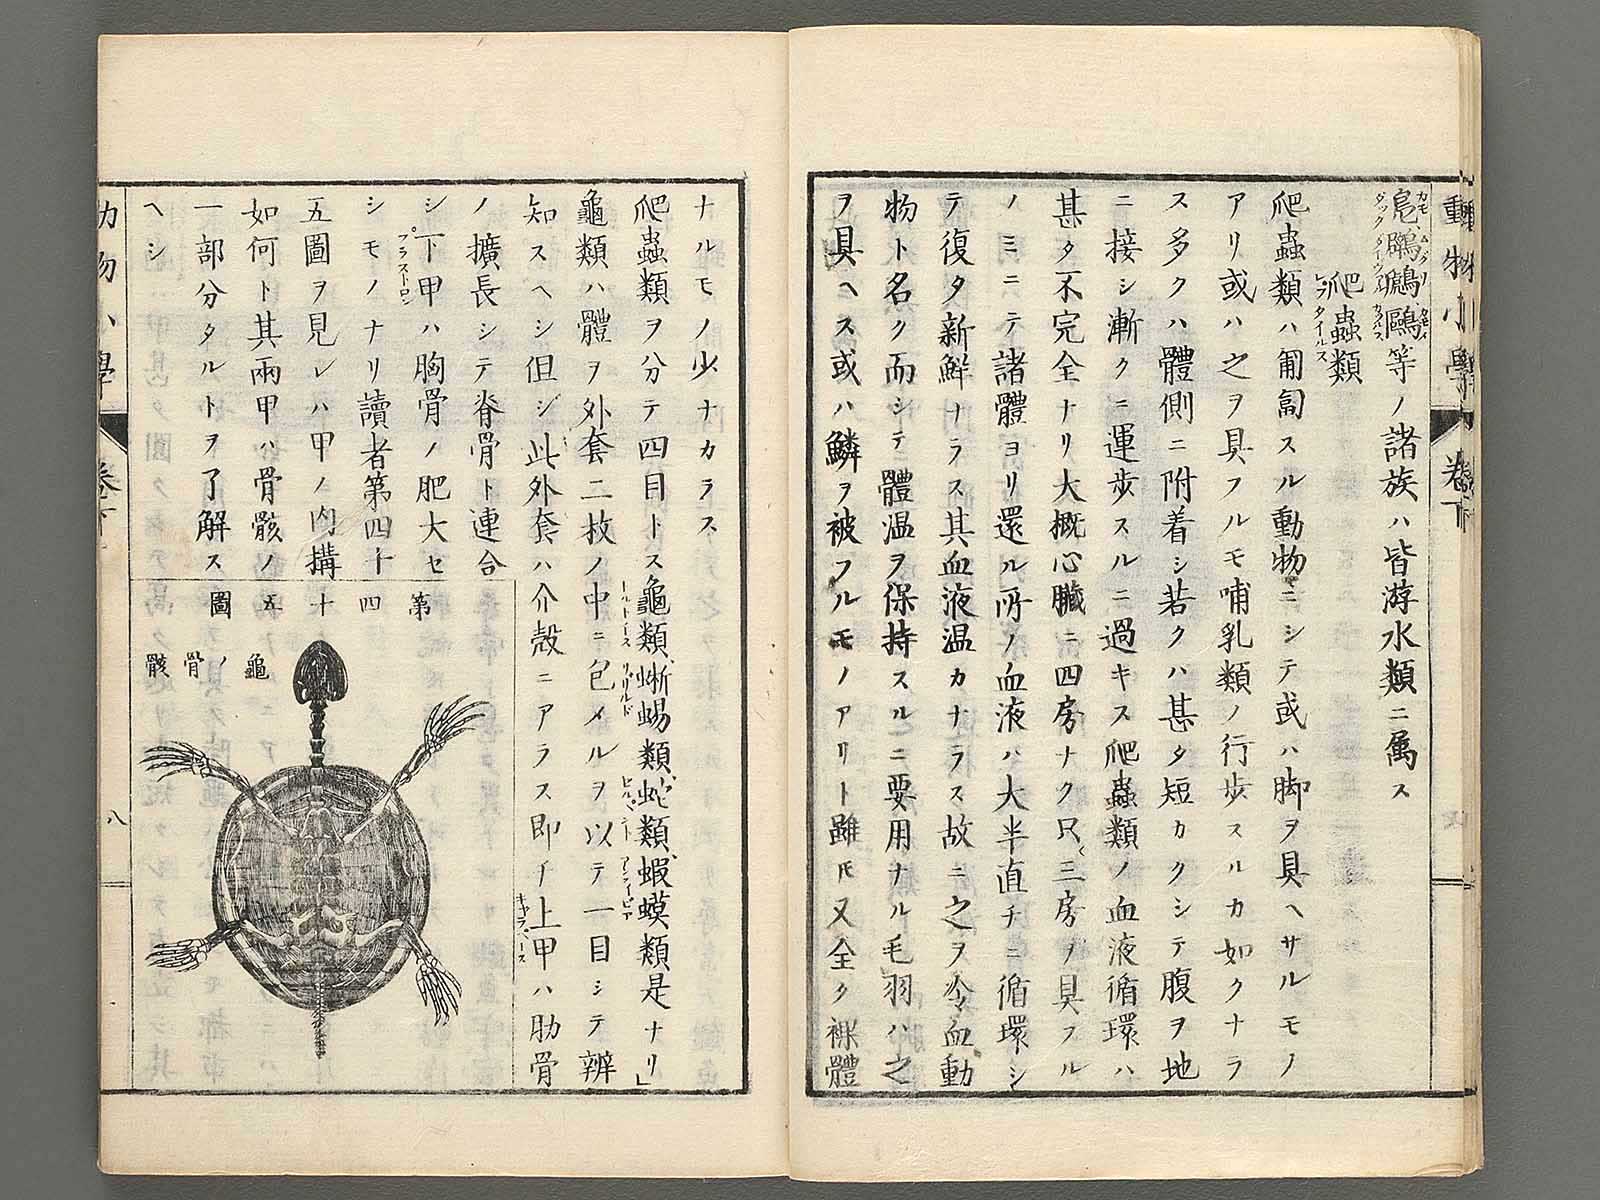 動物小學 卷下
鳧鸊鷉鷗等ノ諸族ハ皆游水類ニ屬ス
爬蟲類
レプタイルス
爬蟲類ハ匍匐スル動物ニシテ或ハ脚ヲ具ヘサルモノ
アリ或ハ之ヲ具フルモ哺乳類ノ行歩スルカ如クナラ
ス多クハ體側ニ附着シ若クハ甚タ短カクシテ腹ヲ地
ニ接シ漸クニ運歩スルニ過キス爬蟲類ノ血液循環ハ
甚タ不完全ナリ大概心臓ニ四房ナク只三房ヲ具フル
ノミニテ諸體ヨリ還ル所ノ血液ハ大半直チニ循環シ
テ復タ新鮮ナラス其血液温カナラス故ニ之ヲ冷血動
物ト名ク而シテ體温ヲ保持スルニ要用ナル毛羽ハ之
ヲ具ヘス或ハ鱗ヲ被フルモノアリト雖𪜈又全ク裸體
ナルモノ少ナカラス
爬蟲類ヲ分テ四目トス龜類、蜥蜴類、蛇類、蝦蟆類是ナリ」
龜類ハ體ヲ外套二枚ノ中ニ包メルヲ以テ一目シテ辨
知スヘシ但シ此外套ハ介殻ニアラス即チ上甲ハ肋骨
ノ擴長シテ脊骨ト連合
シ下甲ハ胸骨ノ肥大セ
プラストロン
シモノナリ讀者第四十
五圖ヲ見レハ甲ノ内搆
如何ト其兩甲ハ骨骸ノ
一部分タルトヲ了解ス
ヘシ
第四十五圖
龜ノ骨骸
動物小學 卷下
八